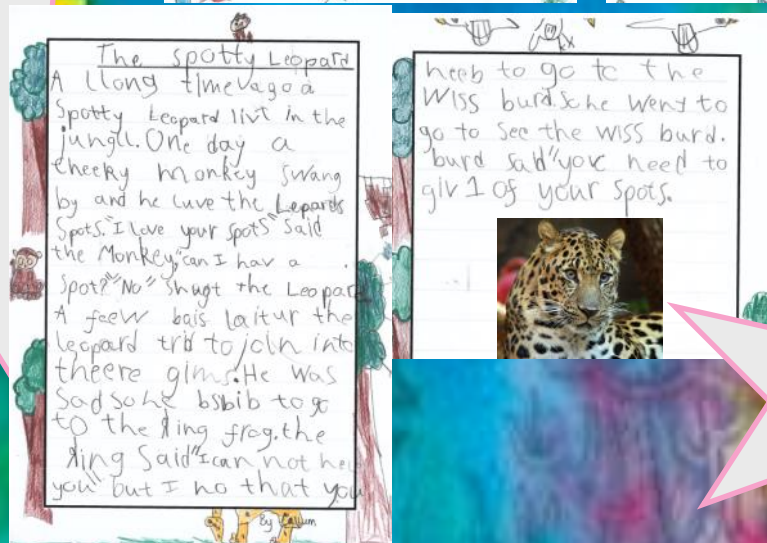 The Spotty Leopard
A llong time ago a
Spotty Leopard livt in the
jungll. One day a
cheeky monkey swang
by and he luve the Lepards
Spots. "I love your spots" said
the Monkey, "can I hav a
Spot?" "No" Shugt the Leopard
A feew bais laitur the
leopard trid to join into
theere gims. He was
Sad so he bsbib to go
to the king frog. the
king Said "I can not help
you" but I no that you
heeb to go to the
Wiss burd. So he went to
go to See the wiss burd.
burd sad "you need to
giv 1 of your spots.
By Callum